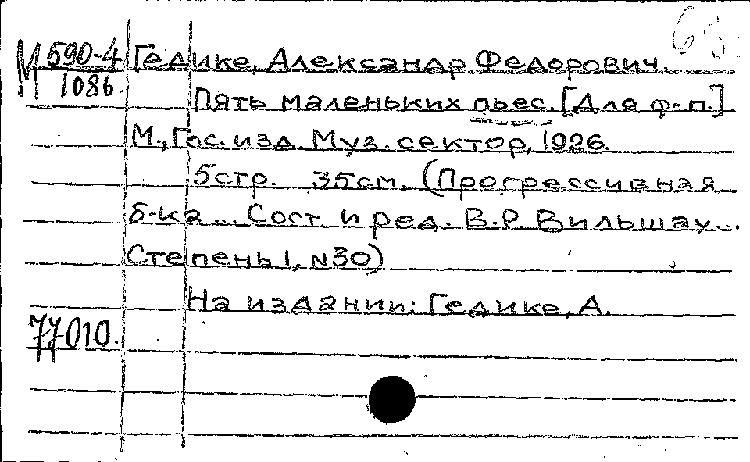 М 590-4 Гедике, Александр Федорович.
1086.
Пять маленьких пьес. [Для ф-п.]
М., Гос. изд. Муз. сектор, 1926.
5стр. 35см. (Прогрессивная
б-ка... Сост. и ред. В.Р. Вильшау...
Степень I, №30)
На издании: Гедике, А.
77010.